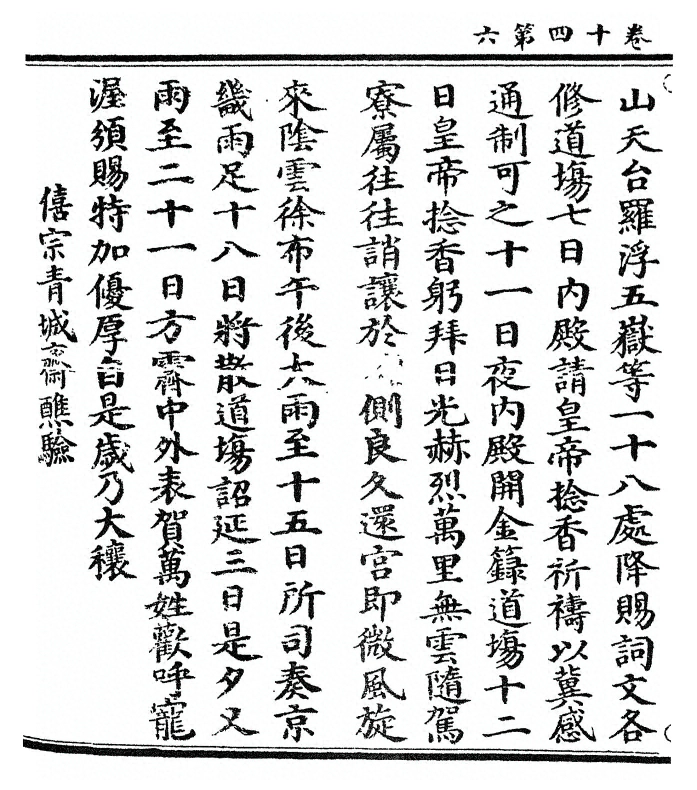 卷十四第六
山天台羅浮五嶽等一十八處降賜詞文各
修道塲七日內殿請皇帝捻香祈禱以冀感
通制可之十一日夜內殿開金籙道塲十二
日皇帝捻香躬拜日光赫烈萬里無雲隨駕
寮屬往往誚讓於側良久還宮即微風旋
來陰雲徐布午後大雨至十五日所司奏京
畿雨足十八日將散道塲詔延三日是夕又
雨至二十一日方霽中外表賀萬姓歡呼寵
渥須賜特加優厚自是歲乃大穰
僖宗青城齋醮驗